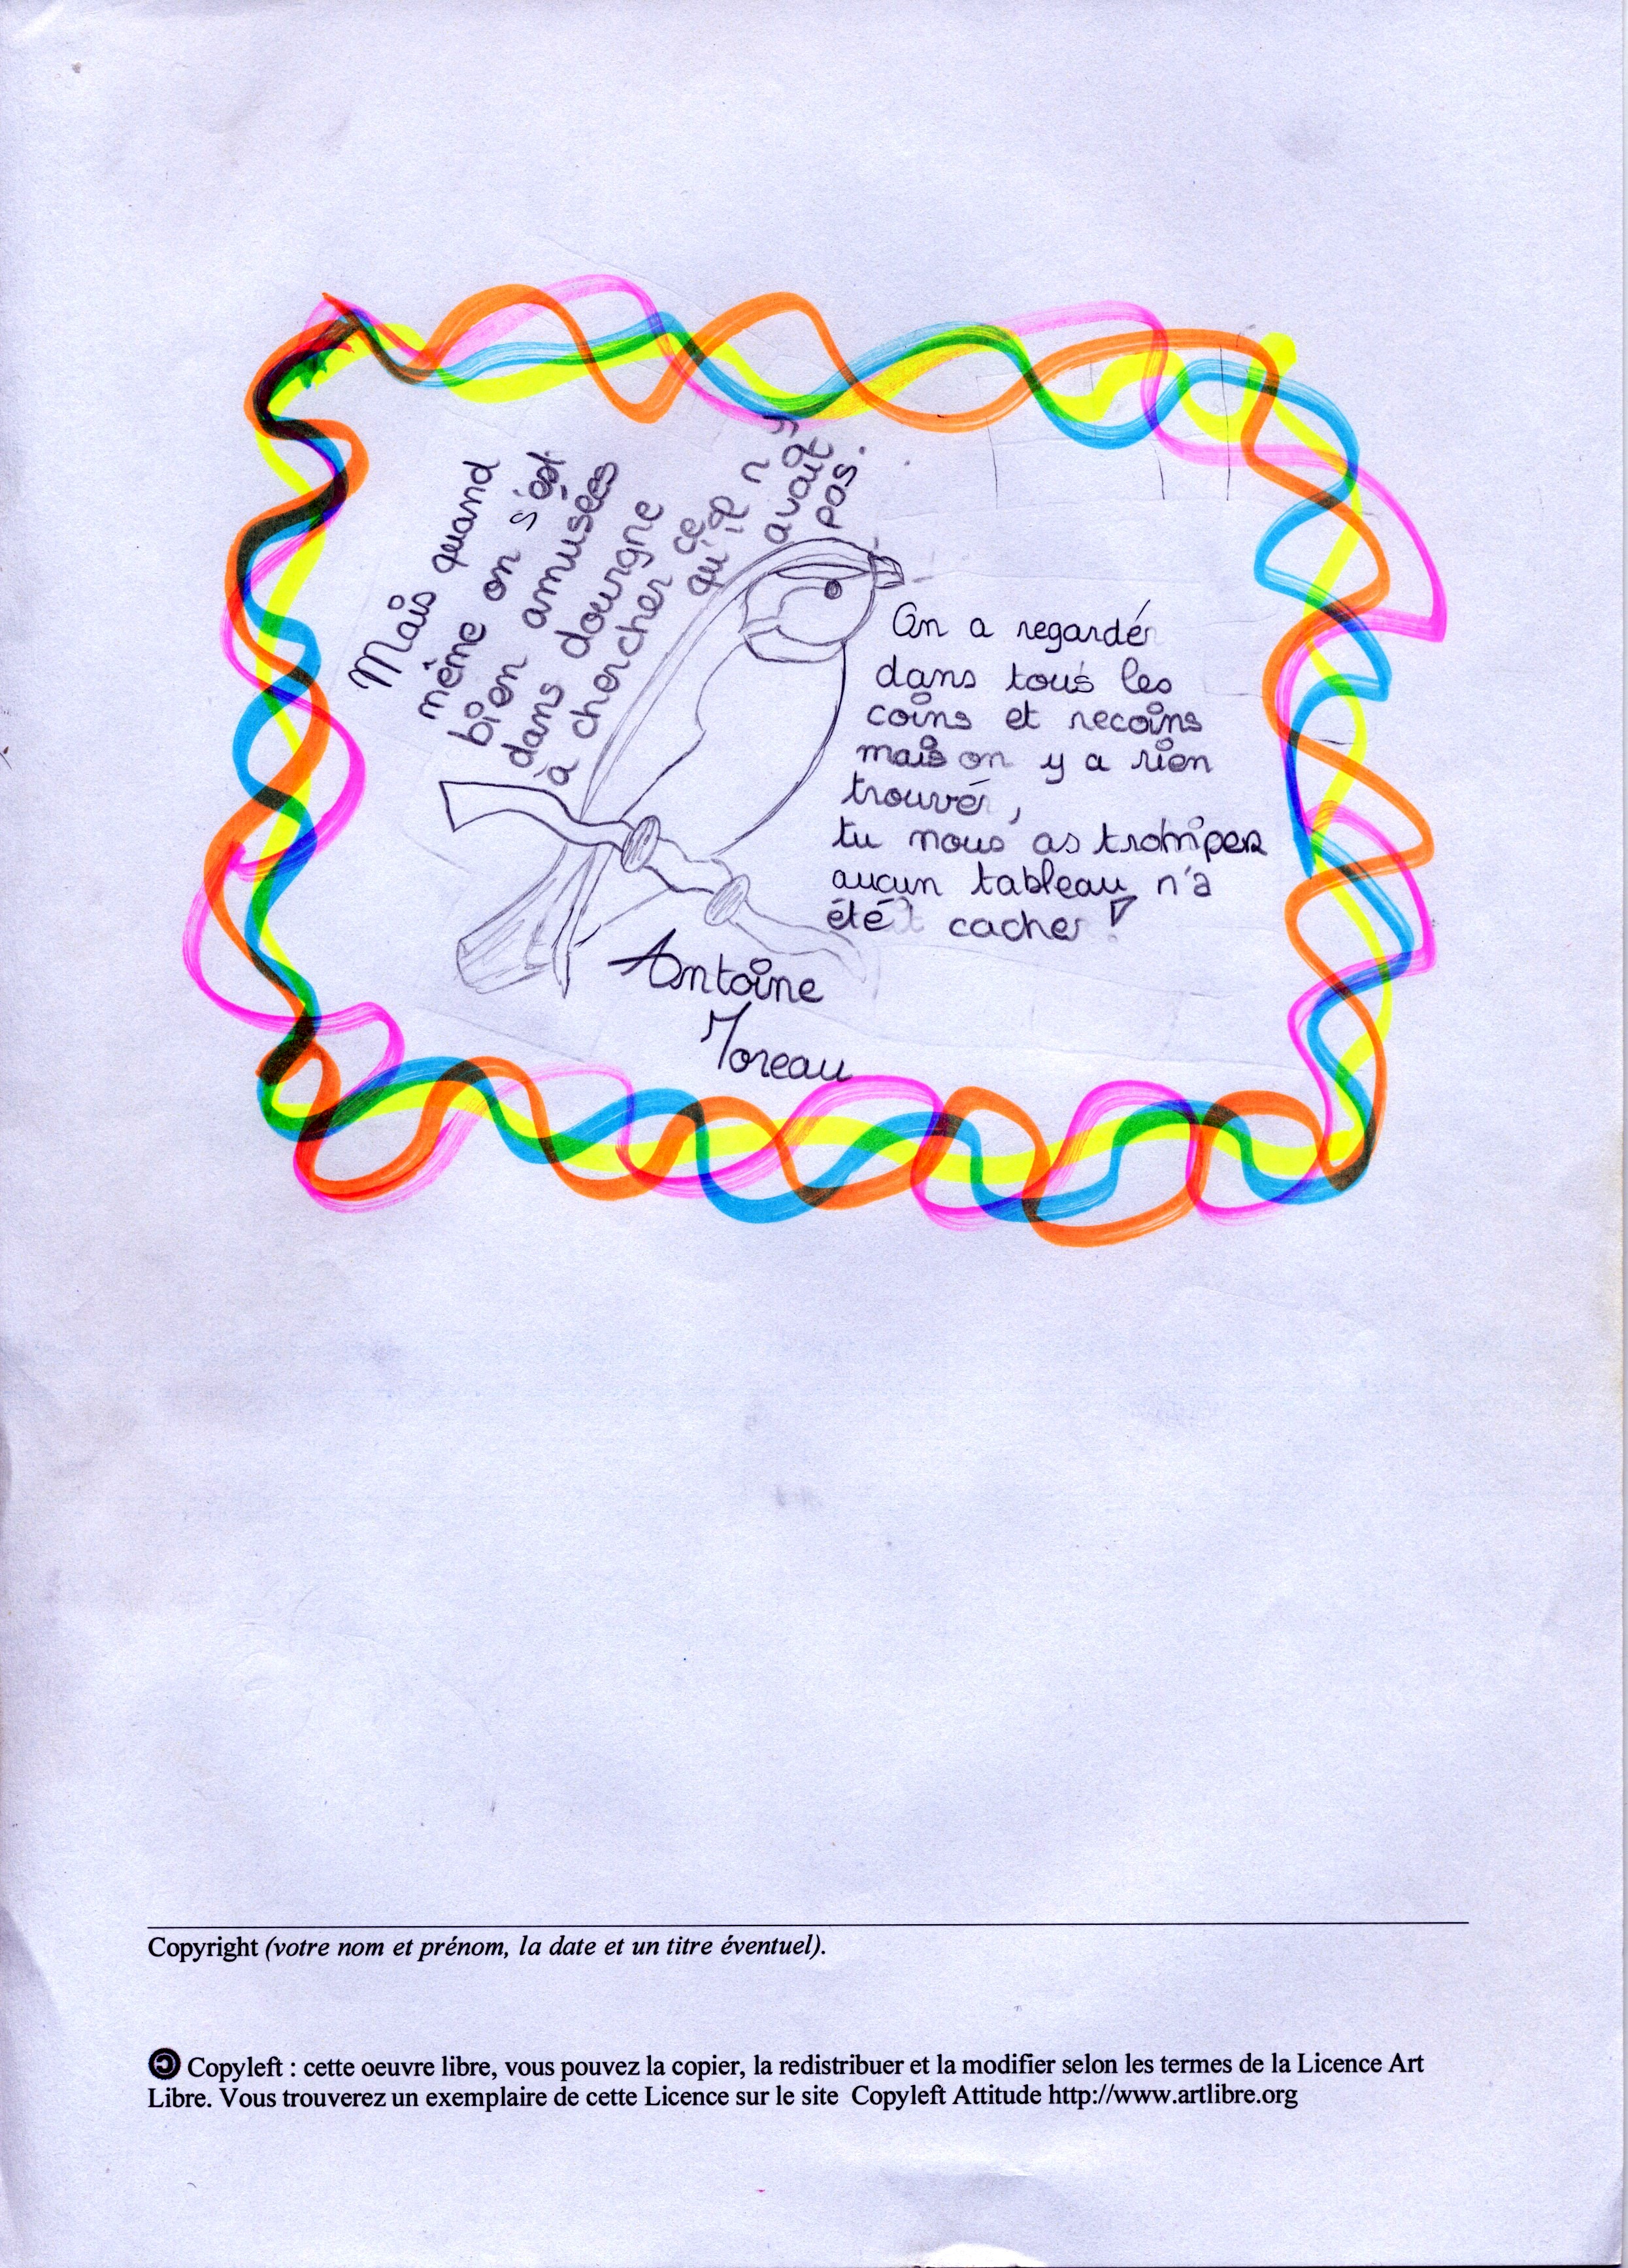 Mais quand
même on s'est
bien amusées
dans dourgne
à chercher ce
qu'il n'y
avait
pas.
On a regardé
dans tous les
coins et recoins
mais on y a rien
trouvé,
tu nous as tromper
aucun tableau n'a
été cache !
Antoine
Moreau
Copyright (votre nom et prénom, la date et un titre éventuel).
Copyleft : cette oeuvre libre, vous pouvez la copier, la redistribuer et la modifier selon les termes de la Licence Art
Libre. Vous trouverez un exemplaire de cette Licence sur le site Copyleft Attitude http://www.artlibre.org